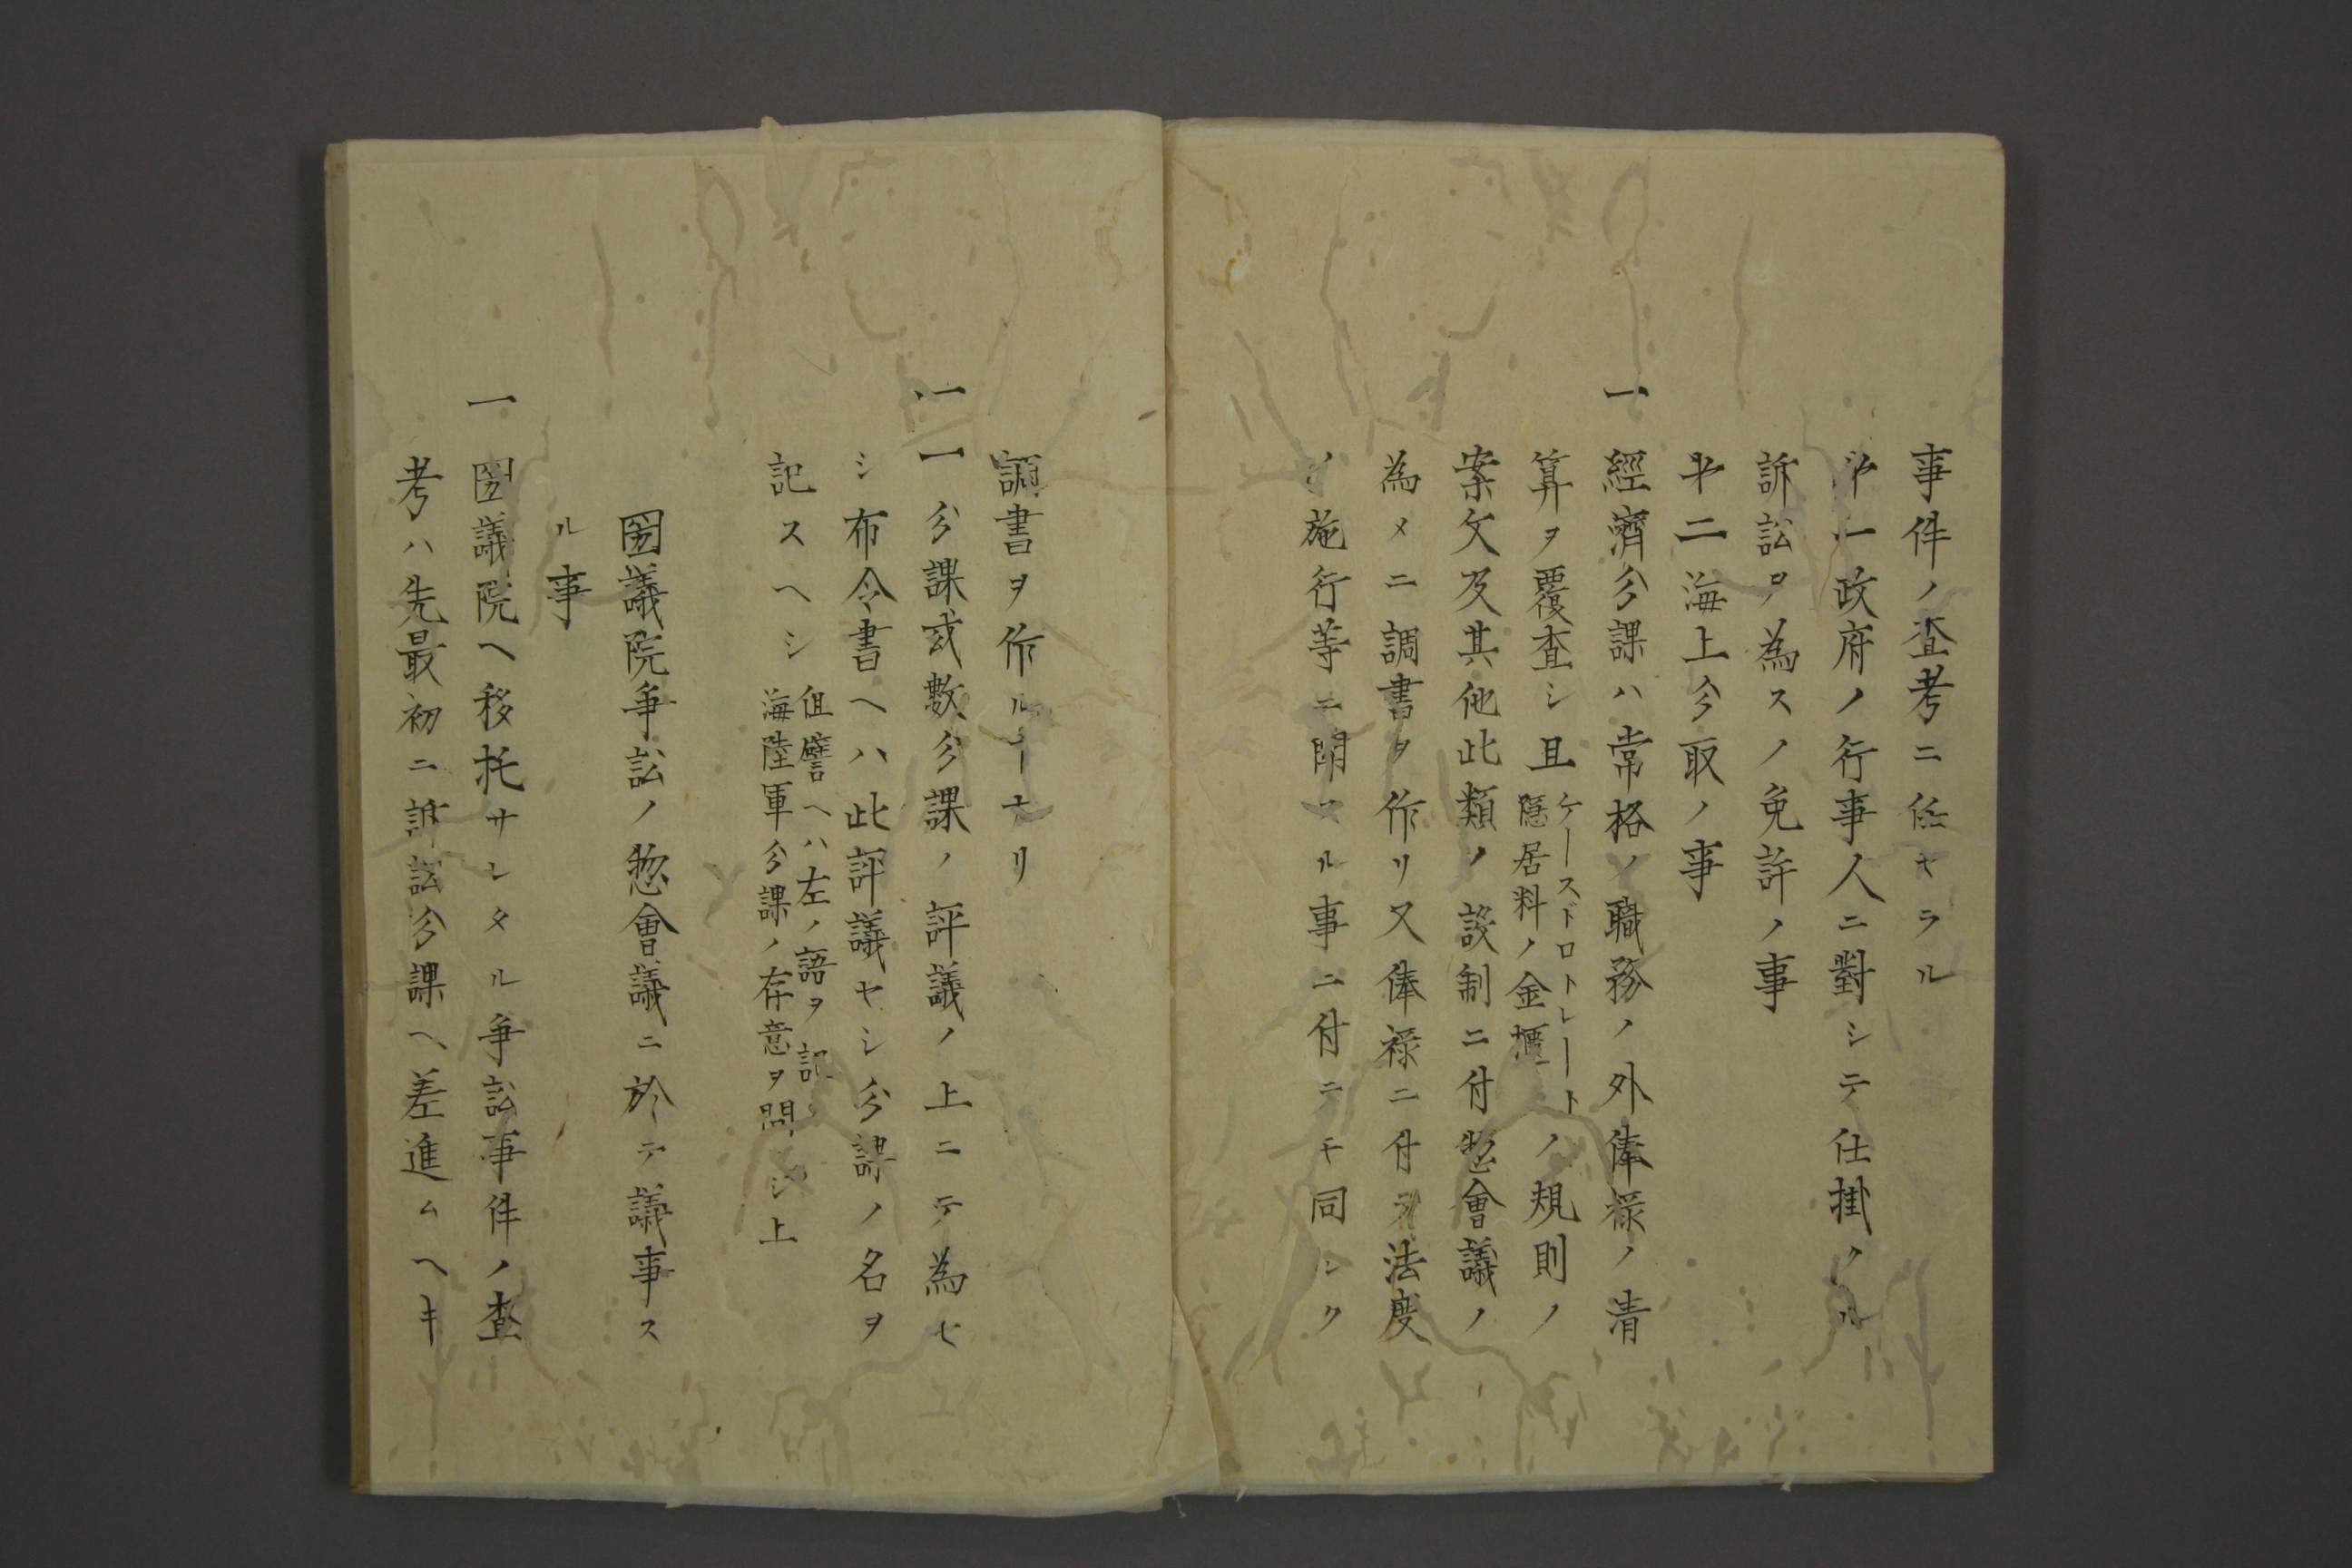 事件ノ査考ニ任セラル
第一政府ノ行事人ニ對シテ仕掛クル
訴訟ヲ為スノ免許ノ事
第二海上分取ノ事
一經濟分課ハ常格ノ職務ノ外俸禄ノ清
算ヲ覆査シ且ケースドロトレート隠居料ノ金櫃ノ規則ノ
案文及其他此類ノ設制ニ付惣會議ノ
為メニ調書ヲ作リ又俸禄ニ付テ法度
ノ施行等ニ関スル事ニ付テモ同シク
調書ヲ作ルヿナリ
一一分課或數分課ノ評議ノ上ニテ為セ
シ布令書ヘハ此評議セシ分課ノ名ヲ
記スヘシ
但譬ヘハ左ノ語ヲ記
海陸軍分課ノ存意ヲ問シ上
国議院爭訟ノ惣會議ニ於テ議事ス
ル事
一国議院ヘ移托サレタル爭訟事件ノ査
考ハ先最初ニ訴訟分課ヘ差進ムヘキ